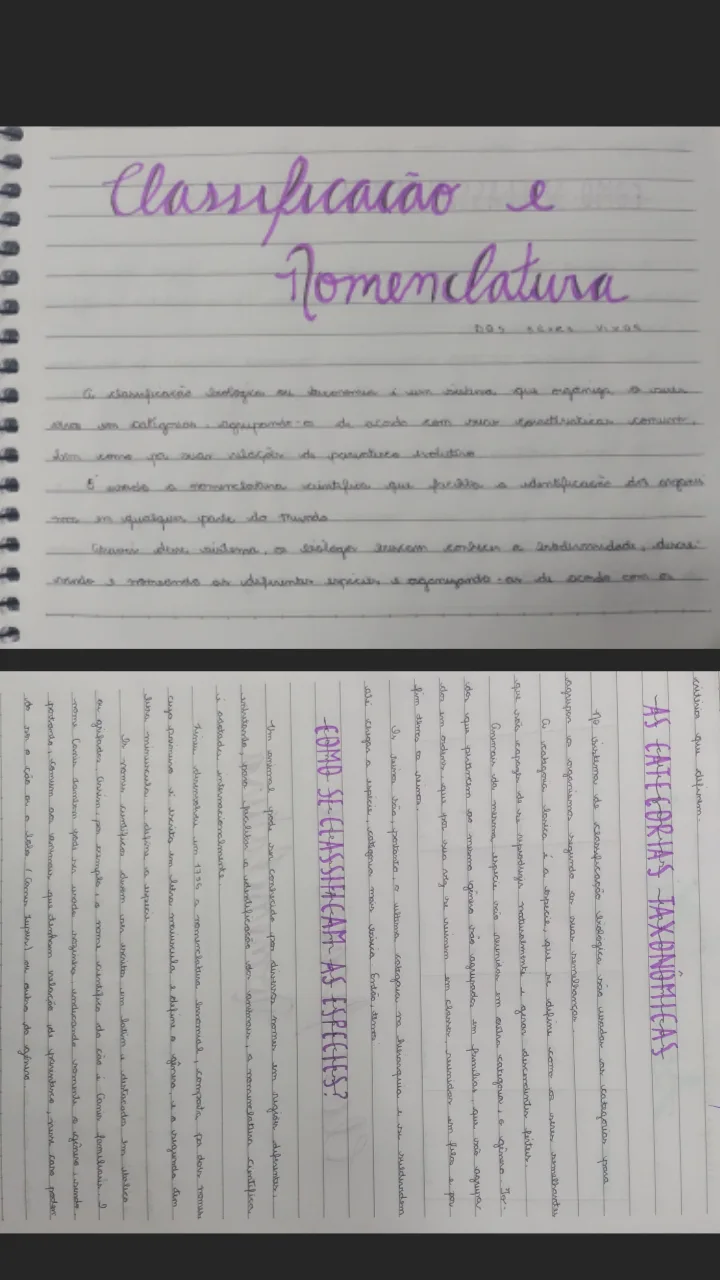 Classificação e
Nomenclatura
DOS SERES VIVOS
A classificação biológica ou taxonomia é um sistema que organiza o seres
vivos em categorias, agrupando-o de acordo com suas características comuns,
bem como por suas relações de parentesco evolutivo
É usada a nomenclatura científica que facilita a identificação dos organis
mos em qualquer parte do mundo
Através desse sistema, os biólogos buscam conhecer a biodiversidade, descre-
vendo e nomeando as diferentes espécies e organizando-as de acordo com os
critérios que definirem.
AS CATEGORIAS TAXONÔMICAS
No sistema de classificação biológica são usadas as categorias para
agrupar os organismos segundo as suas semelhanças
A categoria básica é a espécie, que se define como os seres semelhantes
que são capazes de se reproduzir naturalmente e gerar descendentes férteis.
Animais da mesma espécie são reunidos em outra categoria, o gênero. To-
dos que pertencem ao mesmo gênero são agrupados em famílias, que são agrupa-
das em ordens, que por sua vez se reúnem em classes, reunidas em filos e por
fim temos os reinos.
Os reinos são, portanto, a última categoria na hierarquia e se subdividem
até chegar a espécie, categoria mais básica. Então, temos
COMO SE CLASSIFICAM AS ESPECIES?
Um animal pode ser conhecido por diversos nomes em regiões diferentes,
entretanto, para facilitar a identificação dos animais, a nomenclatura científica
é adotada internacionalmente
Lineu desenvolveu em 1735 a nomenclatura binomial, composta por dois nomes
cujo primeiro é escrito em letra maiúscula e define o gênero, e o segundo tem
letra minúscula e define a espécie
Os nomes científicos devem ser escritos em latim e destacados em itálico
ou grifados. Assim, por exemplo, o nome científico do cão é Canis familiaris. O
nome Canis também pode ser usado sozinho, indicando somente o gênero, sendo
portanto, comum aos animais que tenham relação de parentesco, nesse caso poden
do ser o cão ou o lobo (Canis lupus) ou outro do gênero